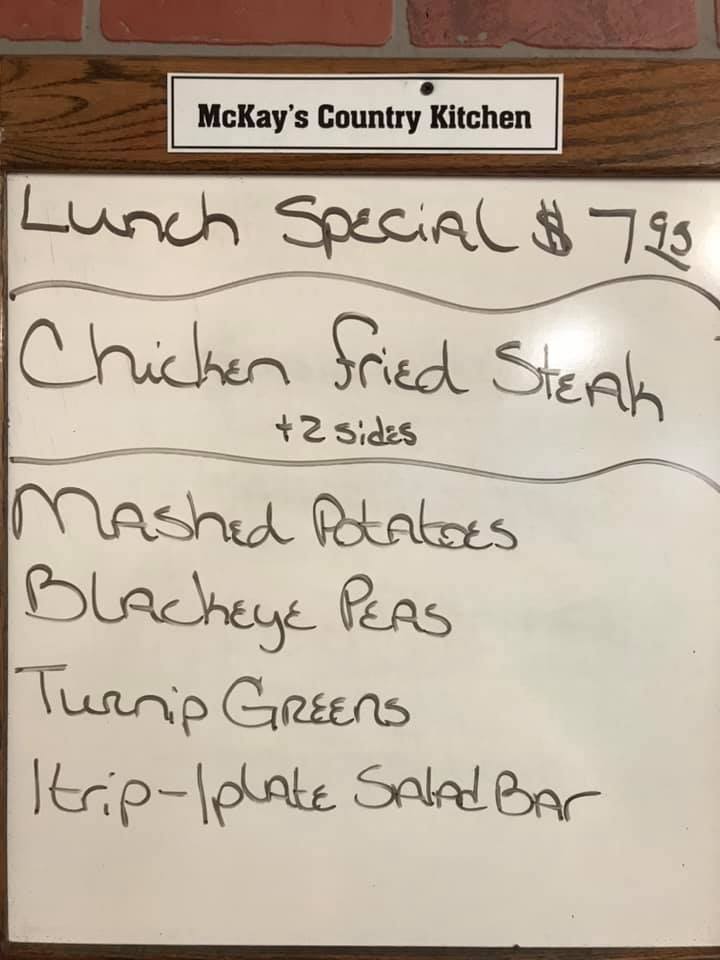 McKay's Country Kitchen
Lunch Special $7.95
Chicken Fried Steak
+2 sides
Mashed Potatoes
Blackeye Peas
Turnip Greens
1trip-1plate Salad Bar